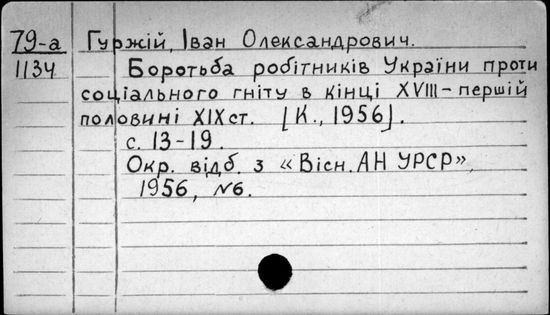 79-а Гуржій, Іван Олександрович.
1134 Боротьба робітників України проти
соціального гніту в кінці XVIII - першій
половині XIX ст. [К., 1956].
с. 13-19.
Окр. відб. з «Вісн. АН УРСР»,
1956, №6.